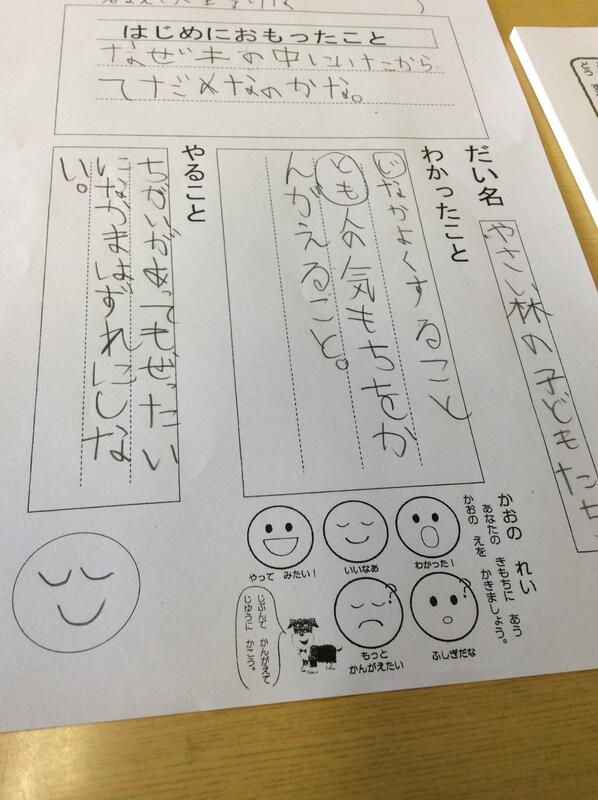 はじめにおもったこと
なぜ木の中にいたから
てだメなのかな。
だい名
やさい林の子どもたち
わかったこと
なかよくすること
とも人の気もちをか
んがえること。
やること
ちがいがあってもぜったい
になかまはずれにしな
い。
かおの れい
あなたの きもちに あう
かおの えを かきましょう。
わかった!
いいなあ
やって みたい!
ふしぎだな
もっと
かんがえたい
じぶんで かんがえて
じゆうに かこう。